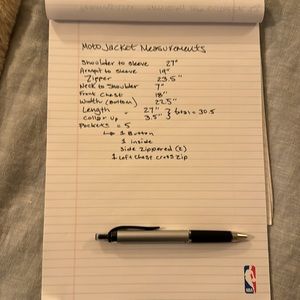 Moto Jacket Measurements
Shoulder to sleeve 27"
Armpit to sleeve 19"
Zipper 23.5"
Neck to Shoulder 7"
Front Chest 18"
Width (Bottom) 22.5"
Length 27" } total = 30.5
Collar up 3.5"
Pockets = 5
↳ 1 Button
1 inside
side zippered (2)
1 Left chest cross zip
NBA